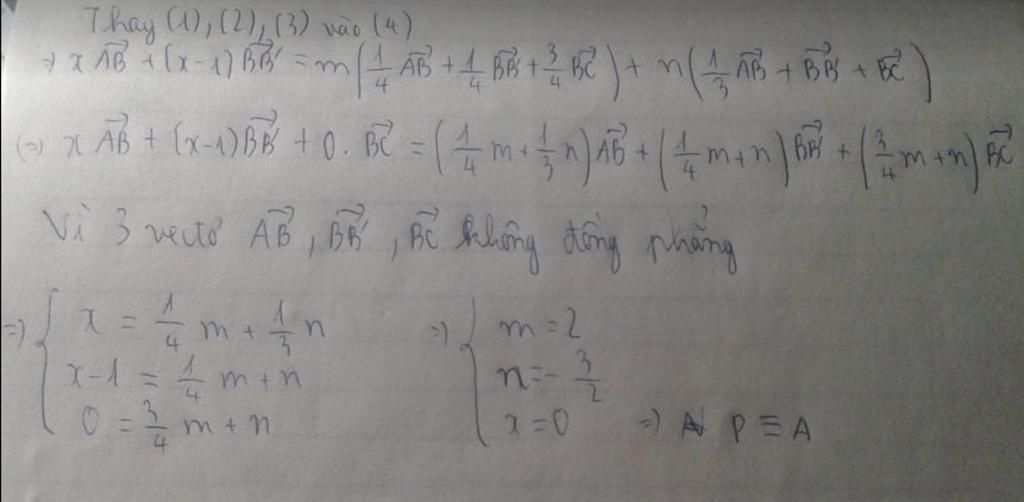 Thay (1), (2), (3) vào (4)
⇒ x \overrightarrow{AB} + (x-1) \overrightarrow{BB'} = m(\frac{1}{4} \overrightarrow{AB} + \frac{1}{4} \overrightarrow{BB'} + \frac{3}{4} \overrightarrow{BC}) + n(\frac{1}{3} \overrightarrow{AB} + \overrightarrow{BB'} + \overrightarrow{BC})
(=) x \overrightarrow{AB} + (x-1) \overrightarrow{BB'} + 0. \overrightarrow{BC} = (\frac{1}{4} m + \frac{1}{3} n) \overrightarrow{AB} + (\frac{1}{4} m + n) \overrightarrow{BB'} + (\frac{3}{4} m + n) \overrightarrow{BC}
Vì 3 vectơ \overrightarrow{AB}, \overrightarrow{BB'}, \overrightarrow{BC} không đồng phẳng
⇒ { x = \frac{1}{4} m + \frac{1}{3} n ⇒ { m = 2
x-1 = \frac{1}{4} m + n n = -\frac{3}{2}
0 = \frac{3}{4} m + n x = 0 ⇒ P ≡ A